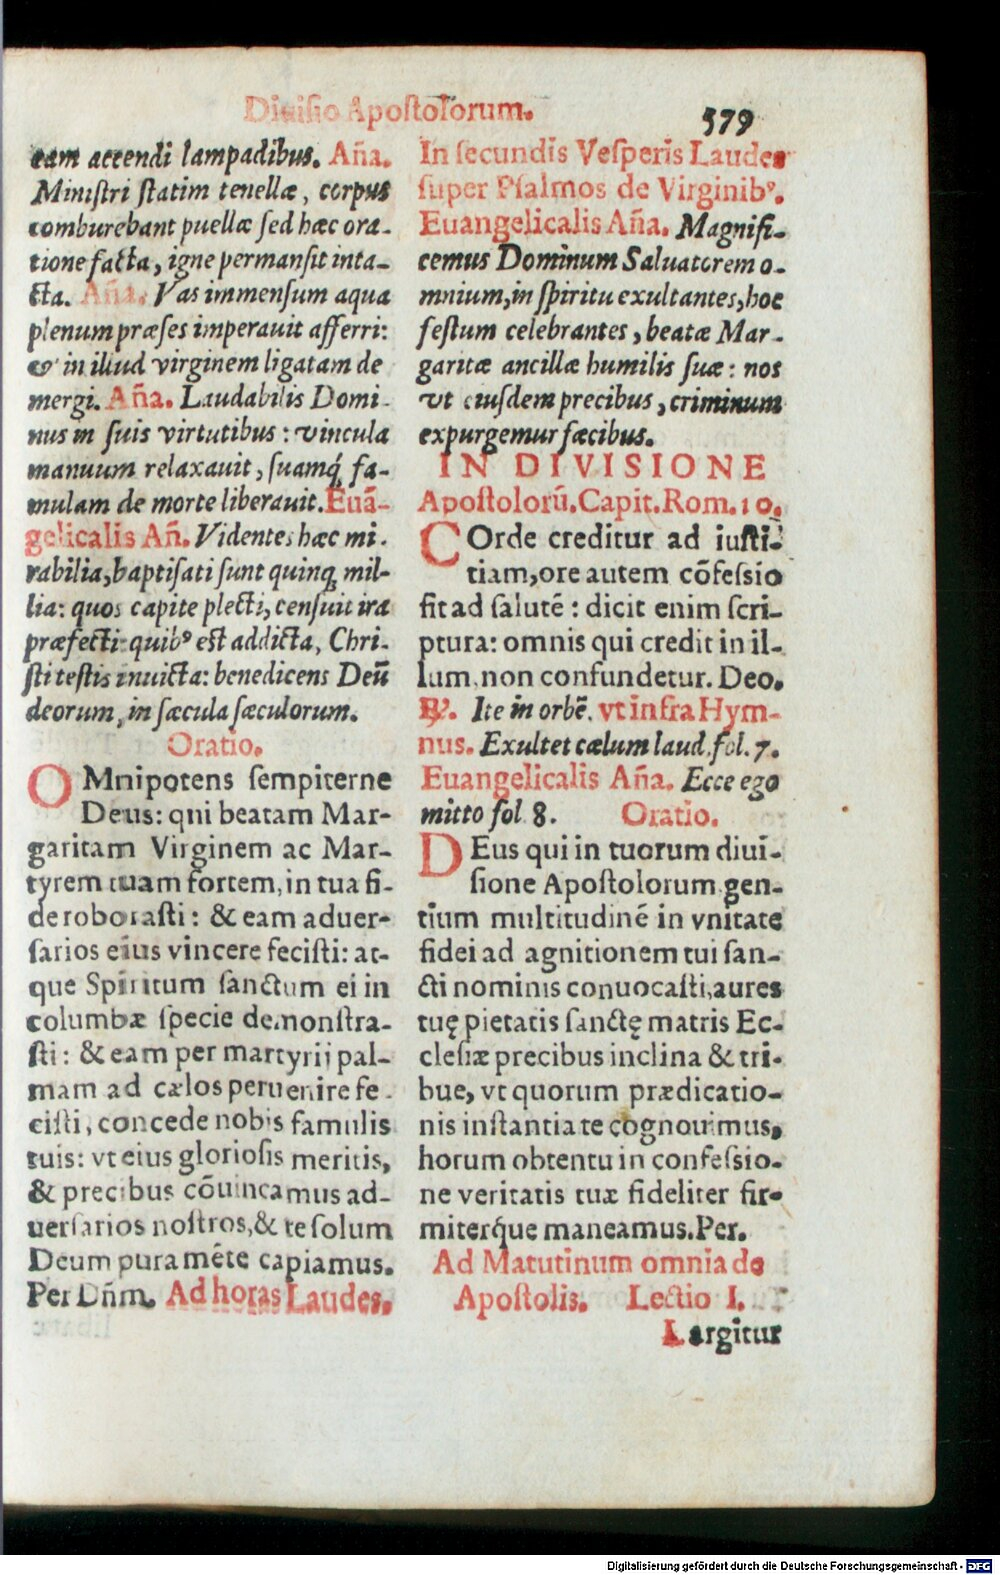 Diuisio Apostolorum.
579
eam accendi lampadibus. Aña.
Ministri statim tenellæ, corpus
comburebant puellæ sed hæc ora-
tione facta, igne permansit inta-
cta. Aña. Vas immensum aqua
plenum præses imperauit afferri:
& in illud virginem ligatam de
mergi. Aña. Laudabilis Domi-
nus in suis virtutibus: vincula
manuum relaxauit, suamq́; fa-
mulam de morte liberauit. Euã-
gelicalis Añ. Videntes hæc mi-
rabilia, baptisati sunt quinq; mil-
lia: quos capite plecti, censuit ira
præfecti: quibꝰ est addicta, Chri-
sti testis inuicta: benedicens Deũ
deorum, in sæcula sæculorum.
Oratio.
OMnipotens sempiterne
Deus: qni beatam Mar-
garitam Virginem ac Mar-
tyrem tuam fortem, in tua fi-
de roborasti: & eam aduer-
sarios eius vincere fecisti: at-
que Spiritum sanctum ei in
columbæ specie demonstra-
sti: & eam per martyrij pal-
mam ad cælos peruenire fe-
cisti, concede nobis famulis
tuis: vt eius gloriosis meritis,
& precibus cõuincamus ad-
uersarios nostros, & te solum
Deum pura mẽte capiamus.
Per Dñm. Ad horas Laudes.
In secundis Vesperis Laudes
super Psalmos de Virginibꝰ.
Euangelicalis Aña. Magnifi-
cemus Dominum Saluatorem o-
mnium, in spiritu exultantes, hoc
festum celebrantes, beatæ Mar-
garitæ ancillæ humilis suæ: nos
vt eiusdem precibus, criminum
expurgemur fæcibus.
IN DIVISIONE
Apostolorũ. Capit. Rom. 10.
COrde creditur ad iusti-
tiam, ore autem cõfessio
fit ad salutẽ: dicit enim scri-
ptura: omnis qui credit in il-
lum, non confundetur. Deo.
℟. Ite in orbẽ. vt infra Hym-
nus. Exultet cælum laud. fol. 7.
Euangelicalis Aña. Ecce ego
mitto fol 8. Oratio.
DEus qui in tuorum diui-
sione Apostolorum gen-
tium multitudinẽ in vnitate
fidei ad agnitionem tui san-
cti nominis conuocasti, aures
tuę pietatis sanctę matris Ec-
clesiæ precibus inclina & tri-
bue, vt quorum prædicatio-
nis instantia te cognouimus,
horum obtentu in confessio-
ne veritatis tuæ fideliter fir-
miterq́ue maneamus. Per.
Ad Matutinum omnia de
Apostolis. Lectio I.
Largitur
Digitalisierung gefördert durch die Deutsche Forschungsgemeinschaft - DFG